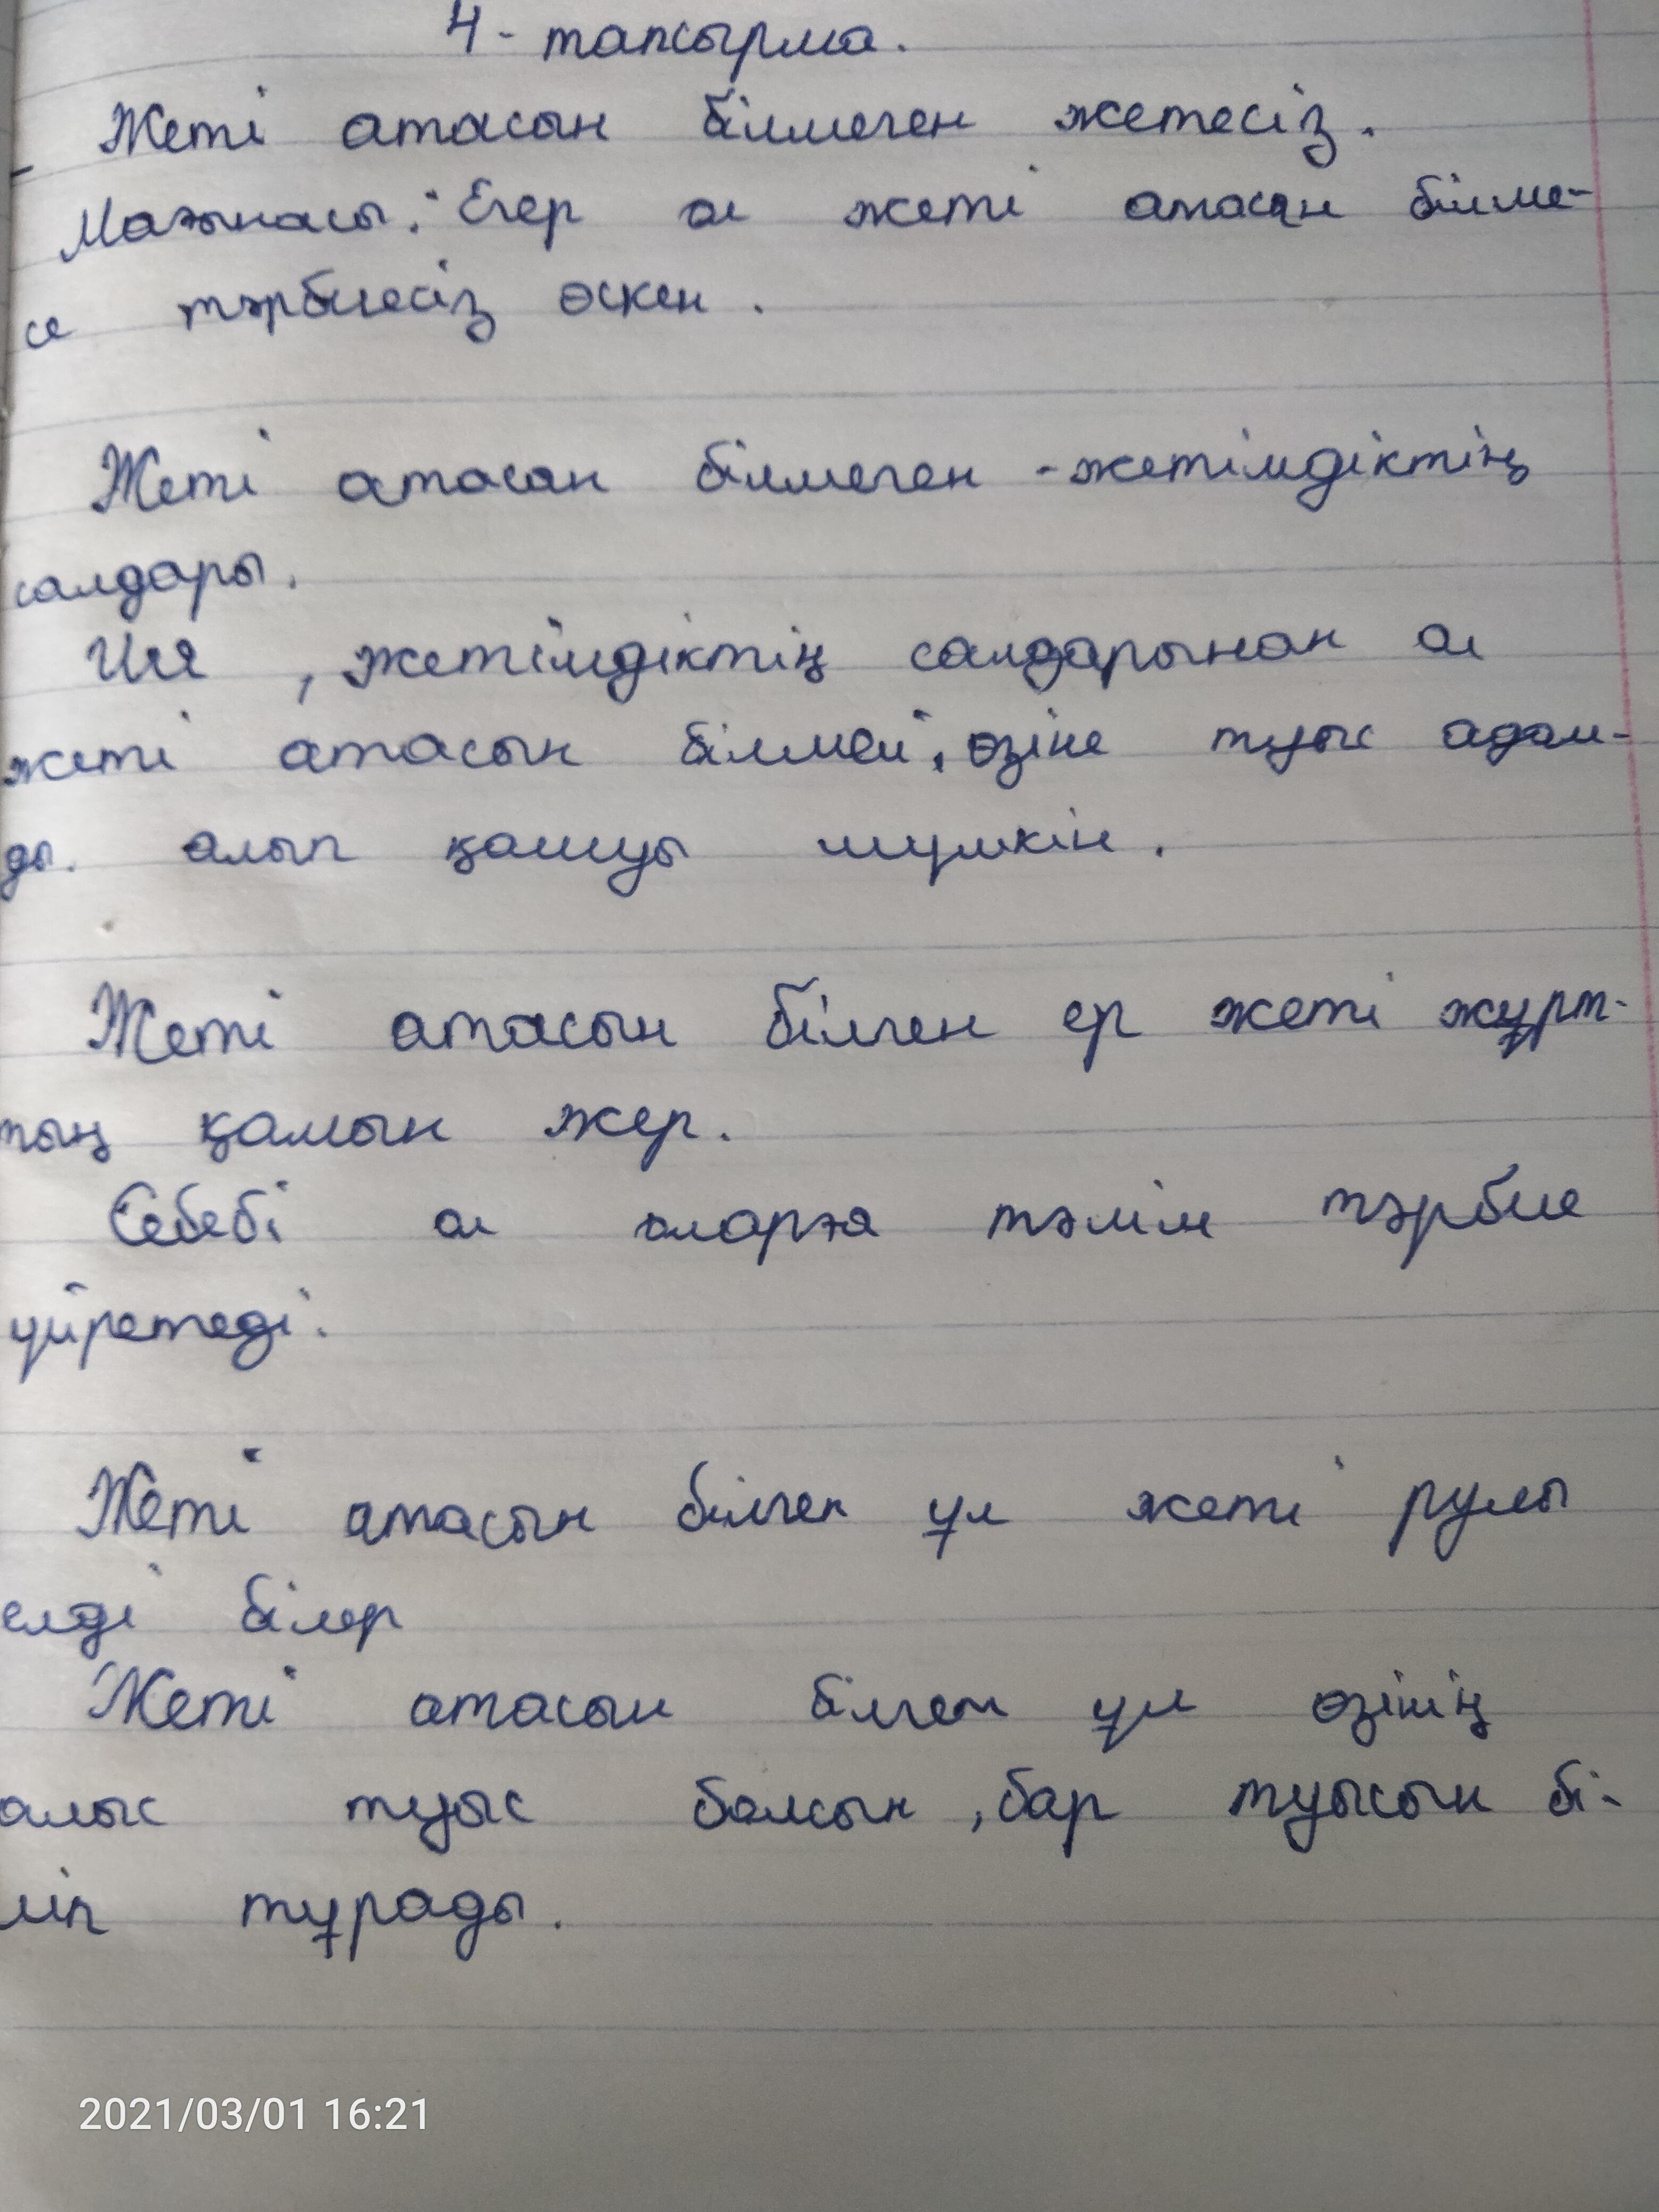 4- тапсырма.
Жеті атасын білмеген жетесіз.
Мағынасы: Егер ол жеті атасын білме-
се тәрбиесіз өскен.
Жеті атасан білмеген -жетімдіктің
салдары.
Ия , жетімдіктің салдарынан ол
жеті атасын білмей, өзіне туыс адам-
ды алып қашуы мүмкін.
Жеті атасын білген ер жеті жұрт-
тың қамын жер.
Себебі ол оларға тәлім тәрбие
үйретеді.
Жеті атасын білген ұл жеті рулы
елді білер
Жеті атасын білген ұл өзінің
алыс туыс болсын , бар туысын бі-
ліп тұрады.
2021/03/01 16:21